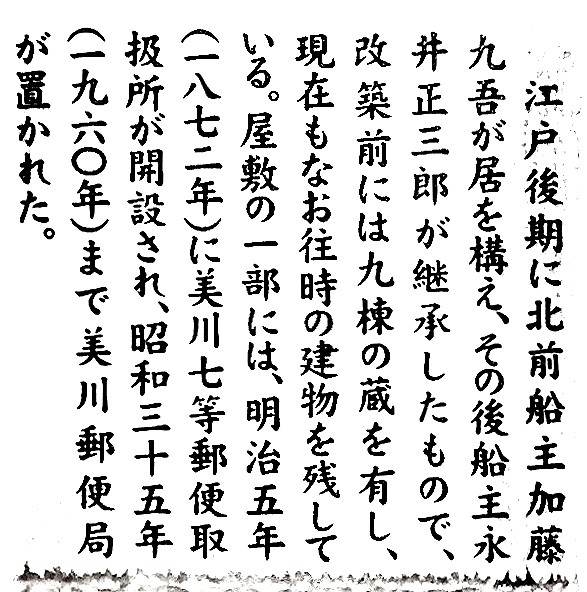 江戸後期に北前船主加藤
九吾が居を構え、その後船主永
井正三郎が継承したもので、
改築前には九棟の蔵を有し、
現在もなお往時の建物を残して
いる。屋敷の一部には、明治五年
(一八七二年)に美川七等郵便取
扱所が開設され、昭和三十五年
(一九六〇年)まで美川郵便局
が置かれた。